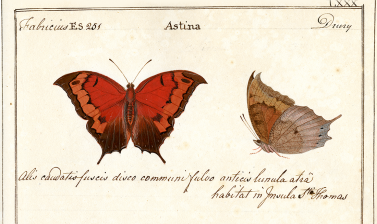 LXXX
Fabricius ES 251 Astina Drury
Alis caudatis fuscis disco communi fulvo anticis lunula atra
habitat in Insula St. Thomas